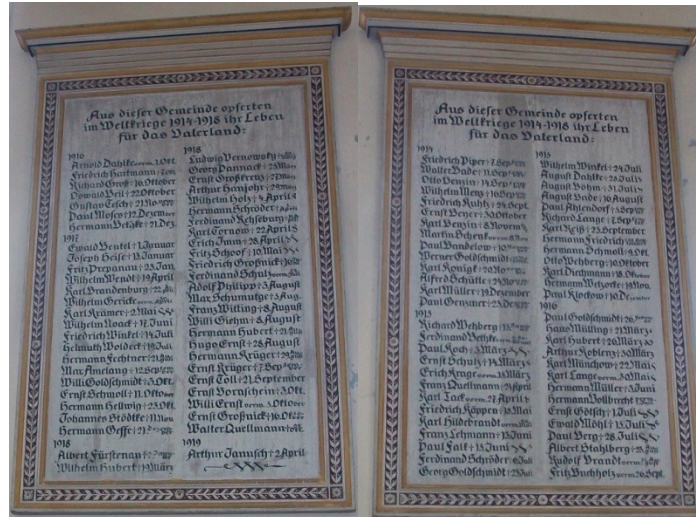 Aus dieser Gemeinde opferten
im Weltkriege 1914-1918 ihr Leben
für das Vaterland:
1916
Arnold Dahlke verm. 1. Okt.
Friedrich Hartmann
Richard Groß 10. Oktober
Oswald Beil 22. Oktober
Gustav Tesch 21. Nov
Paul Moses 12. Dezem
Hermann 21. Dez.
1917
Ewald Bentel 1. Januar
Joseph Heise 13. Januar
Fritz Prepanau 25. Jan.
Wilhelm Wendt 19. April
Karl Brandenburg 22.
Wilhelm Gericke verm.
Karl Krämer 2. Mai
Wilhelm Noack 17. Juni
Friedrich Winkel 14. Juli
Helmuth Woldeck 18. Juli
Hermann Fechtner 21.
Max Amelang 12. Sep
Willi Goldschmidt 3. Okt.
Ernst Schmoll 11. Oktober
Hermann Hellwig 23. Okt.
Johannes Stödtke 1. Nov
Hermann Geffe 21.
1918
Albert Fürstenau
Wilhelm Hubert 19. März
1918
Ludwig Vernowsky
Georg Pannack 25. März
Ernst Großkreuz 27. März
Arthur Hamjohr 29. März
Wilhelm Holz 4. April
Hermann Schröder
Ferdinand Rehseburg
Karl Tornow 22. April
Erich Imm 28. April
Fritz Schoof 10. Mai
Friedrich Großnick 16.
Ferdinand Schulz verm.
Adolf Philipp 3. August
Max Schumutge 3. Aug.
Franz Willing 8. August
Willi Giehm 8. August
Hermann Hubert
Hugo Ernst 28. August
Hermann Krüger
Ernst Krüger 7. Sep
Ernst Toll 21. September
Ernst Bornschein 3. Okt.
Willi Ernst verm. 3. Oktober
Ernst Großnick 16. Okt.
Walter Quellmann
1919
Arthur Jannusch 2. April
Aus dieser Gemeinde opferten
im Weltkriege 1914-1918 ihr Leben
für das Vaterland:
1914
Friedrich Piper 7. Sep
Walter Bade 11. Sep
Otto Benzin 14. Sep
Wilhelm Menz 16. Sep
Friedrich Kuhtz 24. Sept.
Ernst Beyer 30. Oktober
Karl Benzin 8. Novem
Martin Schenk verm. 8. Nov
Paul Bandelow 10.
Werner Goldschmidt
Karl König 20. Nov
Alfred Schütte 24. Nov
Karl Müller 19. Dezember
Paul Genzner 23. Dez
1915
Richard Wehberg 13.
Ferdinand Bethke verm.
Paul Koch 3. März
Ernst Schulz 14. März
Erich Krage verm. 18. März
Franz Quellmann 21. April
Karl Tack verm. 27. April
Friedrich Käppen 18. Mai
Karl Hildebrandt verm. Juni
Franz Lehmann 13. Juni
Paul Falt 13. Juni
Ferdinand Schröder 6. Juli
Georg Goldschmidt 23. Juli
1915
Wilhelm Winkel 24. Juli
August Dahlke 28. Juli
August Böhm 31. Juli
August Bade 16. August
Paul Ahlendorf 3. Sep
Richard Lange 7. Sep
Karl Reiß 23. September
Hermann Friedrich
Hermann Schmoll 4. Okt.
Otto Wehberg 10. Oktober
Karl Diechmann 18. Oktober
Hermann Wetzorke 19. Nov.
Paul Klockow 10. Dezember
1916
Paul Goldschmidt 26.
Hans Milling 21. März
Karl Hubert 26. März
Arthur Koblenz 30. März
Karl Münchow 22. Mai
Karl Lange verm. 30. Mai
Hermann Müller 3. Juni
Hermann Vollbrecht
Ernst Götsch 1. Juli
Ewald Möhl 15. Juli
Paul Berg 28. Juli
Albert Stahlberg
Rudolf Brandt verm.
Fritz Buchholz verm. 26. Sept.